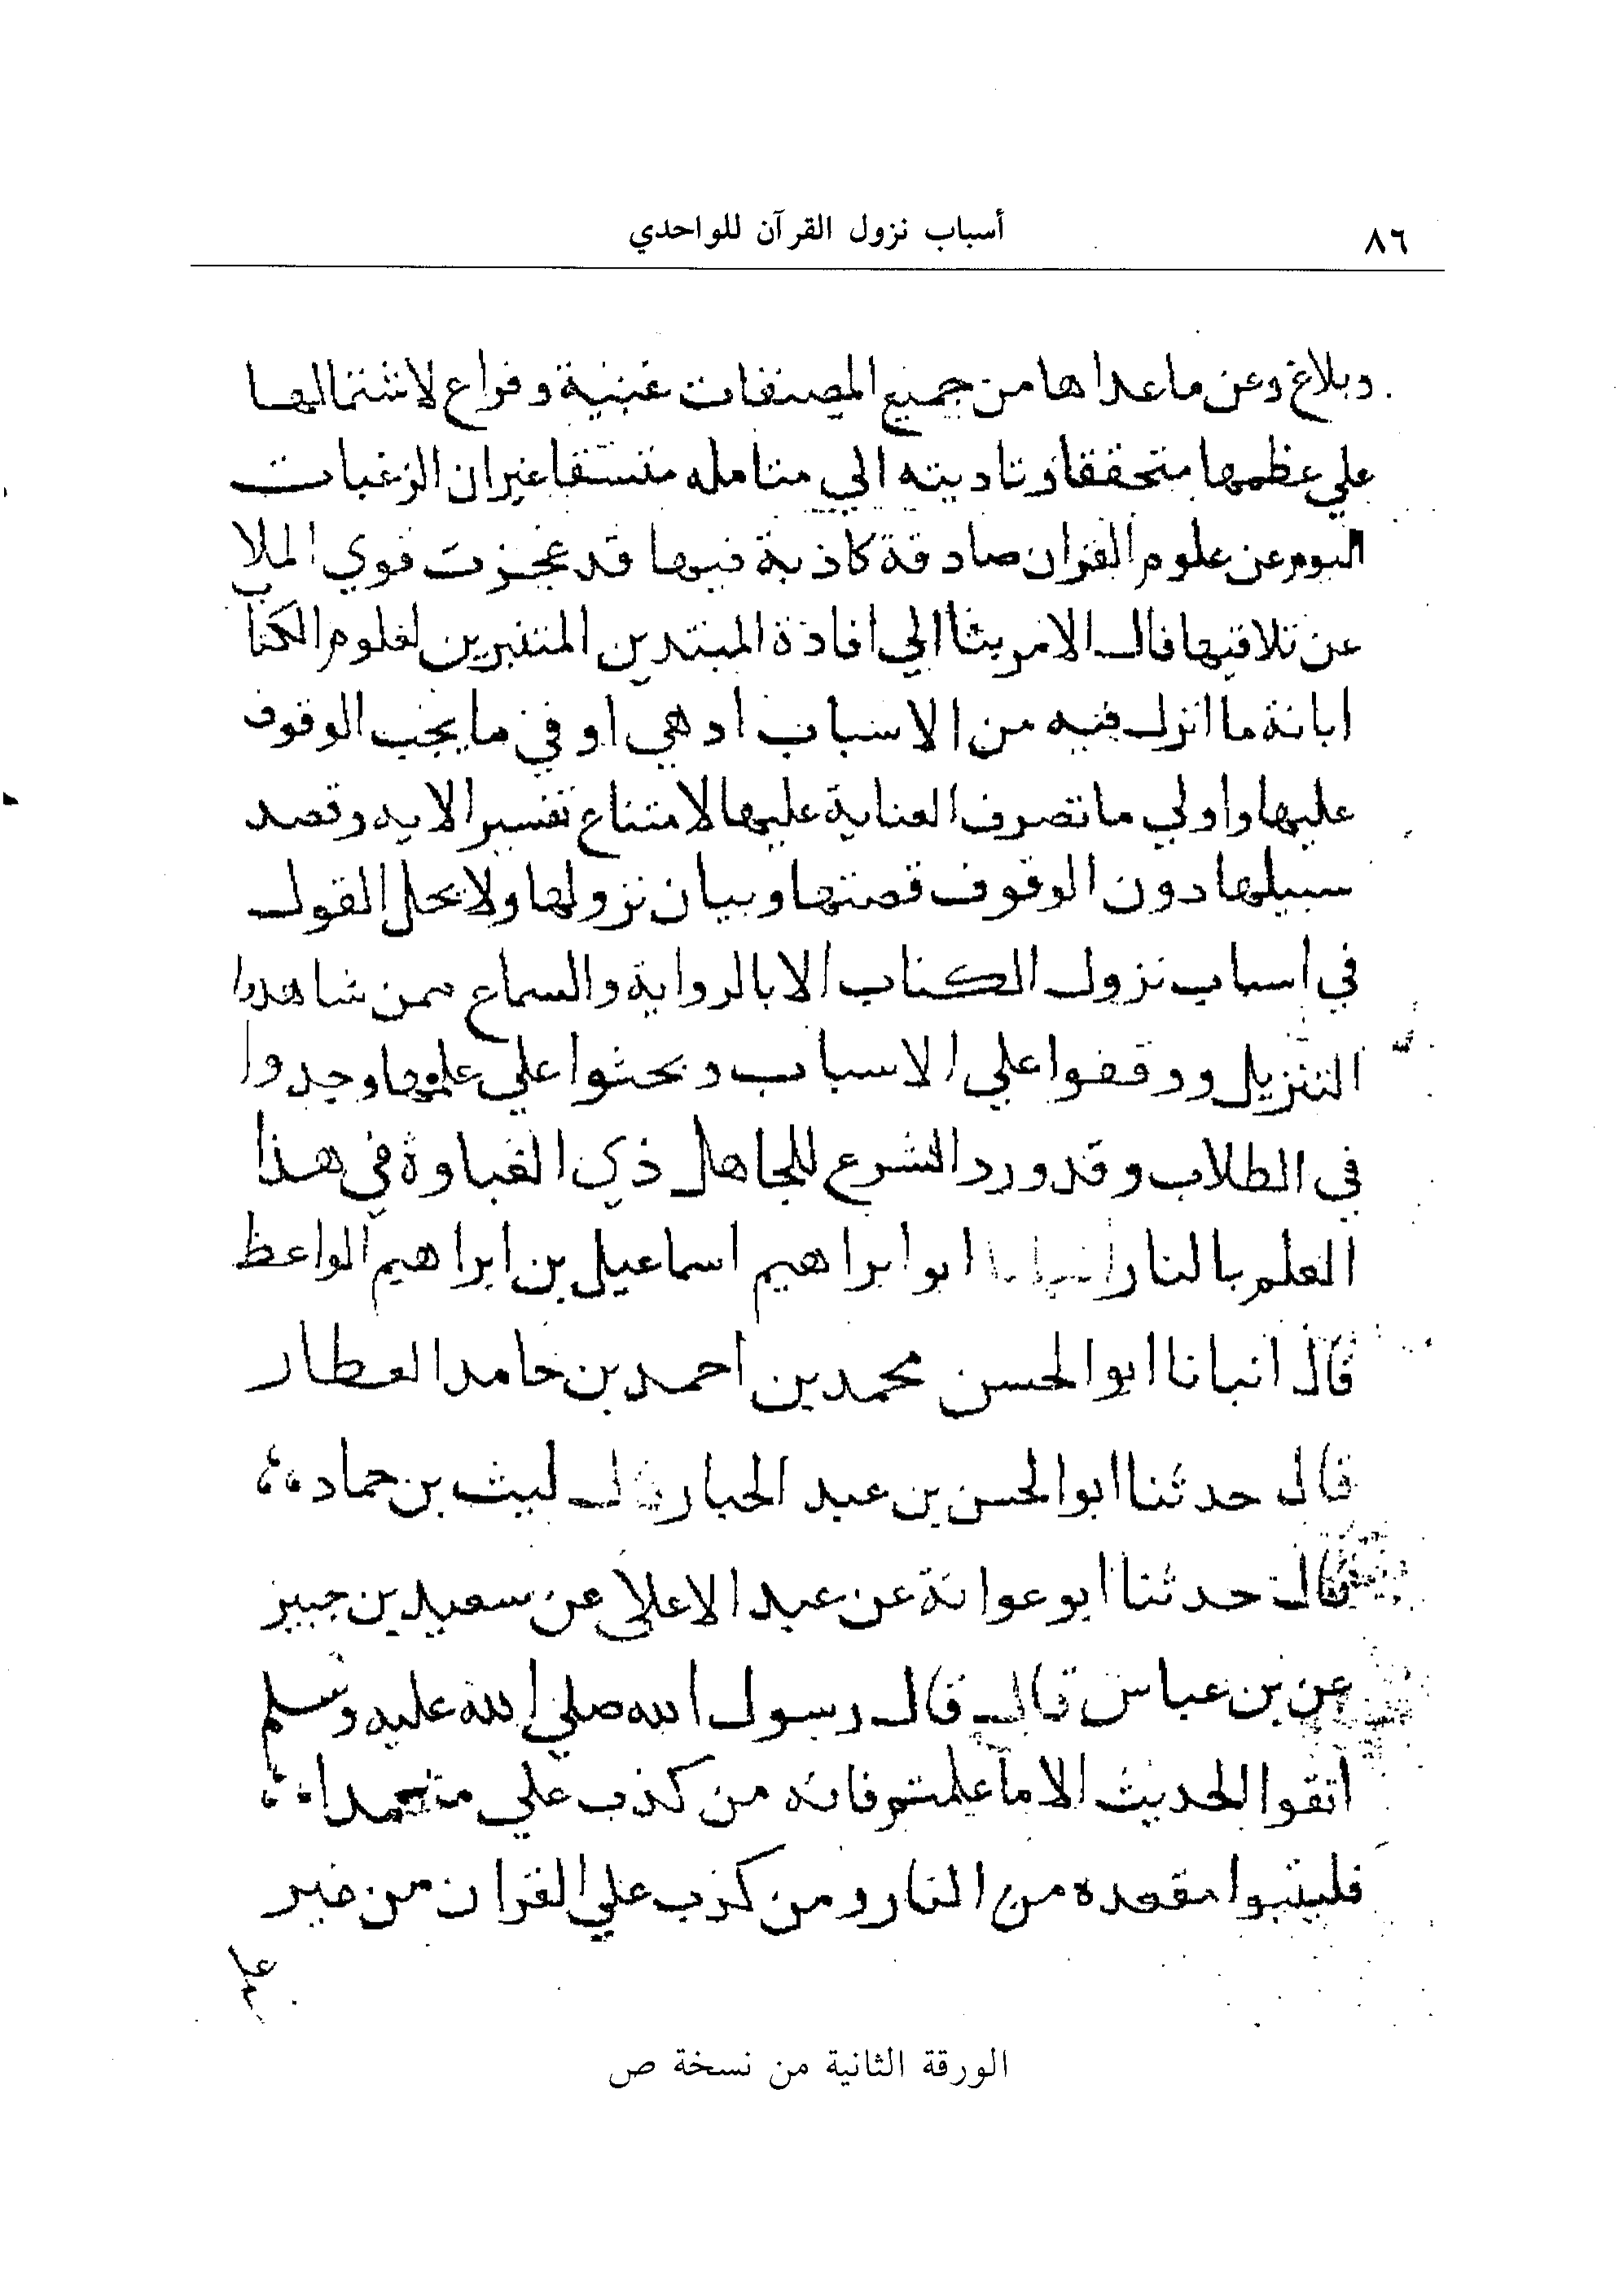 ٨٦
أسباب نزول القرآن للواحدي
وبلاغ وعن ما عداها من جميع المصنفات غنية وفراغ لاشتمالها
علي عظمها متحققا وتاديته الي متامله متسقا غيران الرغبات
اليوم عن علوم القران صادقة كاذبة فيها قد عجزت قوي الملا
عن تلافيها فال الامر بنا الي افادة المبتدين المتنبرين لعلوم الكتاب
ابانة ما انزل فيه من الاسباب اد هي اوفي ما يجب الوقوف
عليها واولي ما تصرف العناية عليها لامتناع تفسير الايه وقصد
سبيلها دون الوقوف قصتها وبيان نزولها ولا يحل القول
في اسباب نزول الكتاب الا بالرواية والسماع ممن شاهدوا
التنزيل ووقفوا علي الاسباب وبحثوا علي علمها وجدوا
في الطلاب وقد ورد الشرع للجاهل ذي الغباوة في هذا
العلم بالنار انبانا ابو ابراهيم اسماعيل بن ابراهيم الواعظ
قال انبانا ابو الحسن محمد بن احمد بن حامد العطار
قال حدثنا ابو الحسن بن عبد الجبار قال ليث بن حماد
قال حدثنا ابو عوانة عن عبد الاعلي عن سعيد بن جبير
عن بن عباس قال قال رسول الله صلي الله عليه وسلم
اتقوا الحديث الا ما علمتم فانه من كذب علي متعمدا
فليتبوا مقعده من النار ومن كذب علي القران من غير
علم
الورقة الثانية من نسخة ص